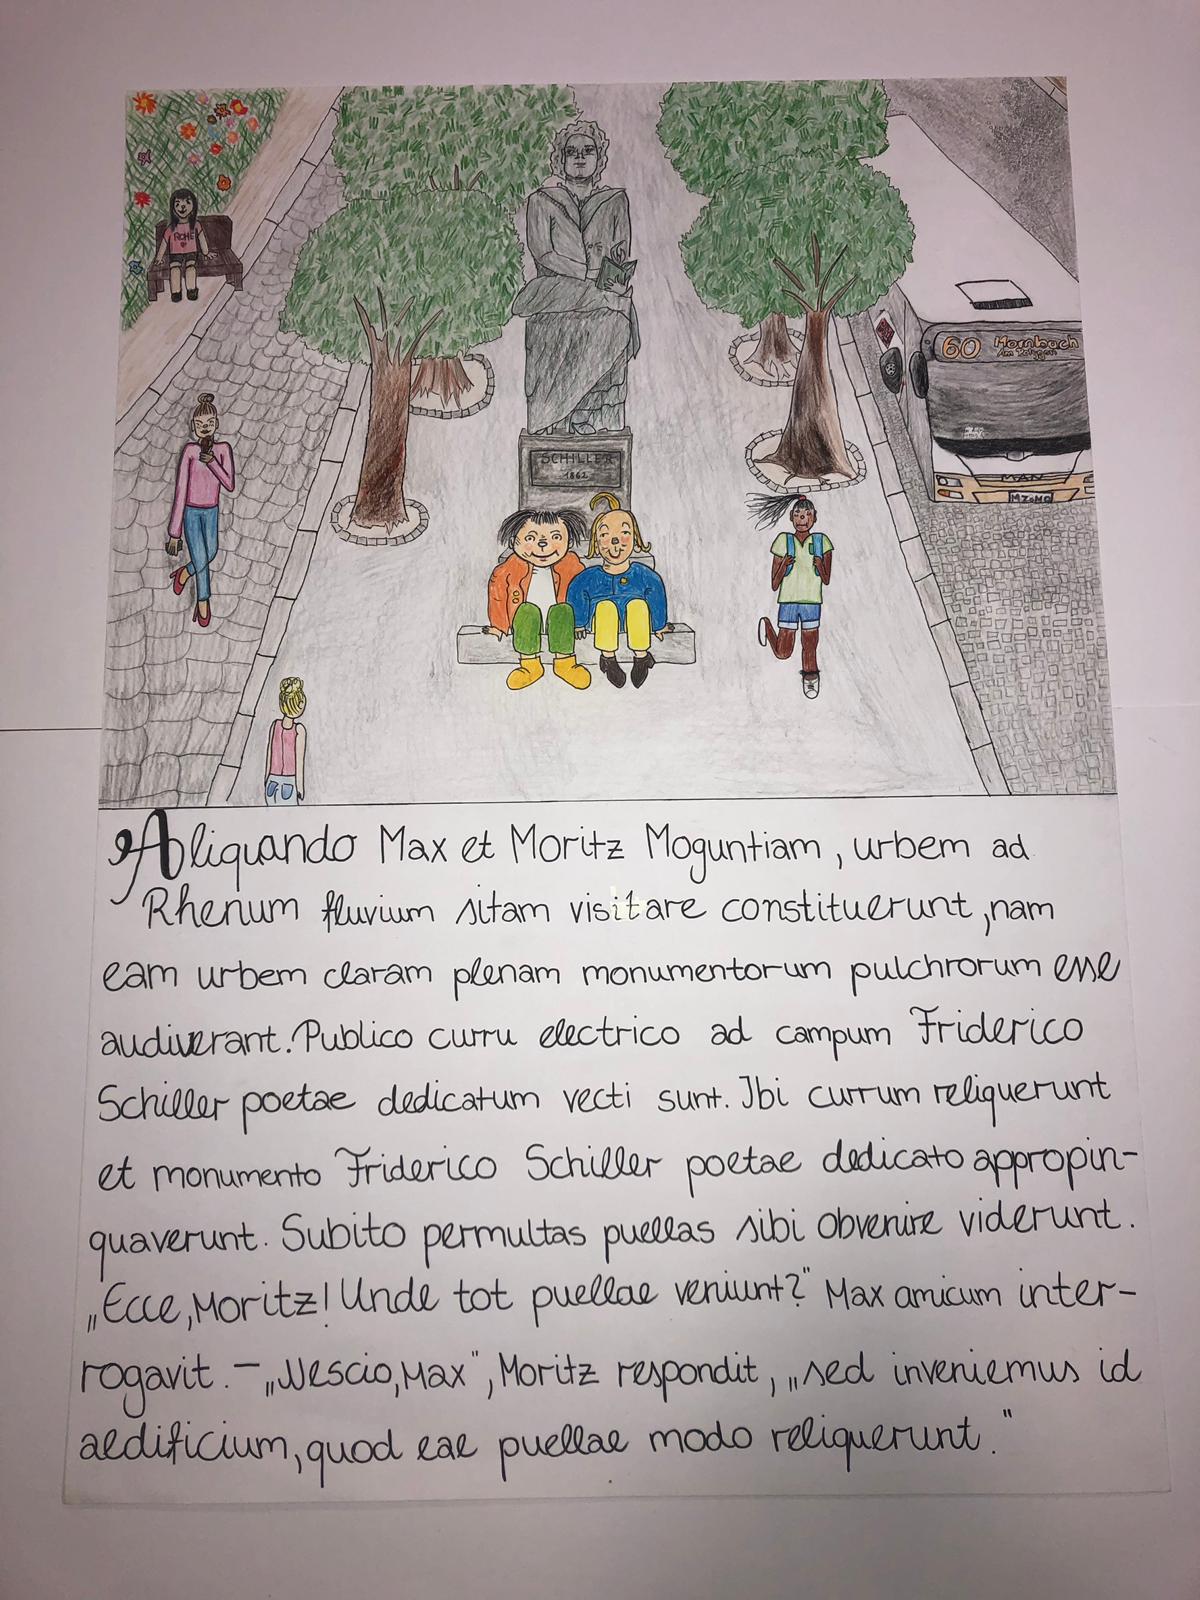 ACHE
60 Mombach
MAN
SCHILLER
1862
Aliquando Max et Moritz Moguntiam, urbem ad
Rhenum fluvium sitam visitare constituerunt, nam
eam urbem claram plenam monumentorum pulchrorum esse
audiverant. Publico curru electrico ad campum Friderico
Schiller poetae dedicatum vecti sunt. Ibi currum reliquerunt
et monumento Friderico Schiller poetae dedicato appropin-
quaverunt. Subito permultas puellas sibi obvenire viderunt.
„Ecce, Moritz! Unde tot puellae veniunt?" Max amicum inter-
rogavit. – „Nescio, Max", Moritz respondit, „sed inveniemus id
aedificium, quod eae puellae modo reliquerunt."